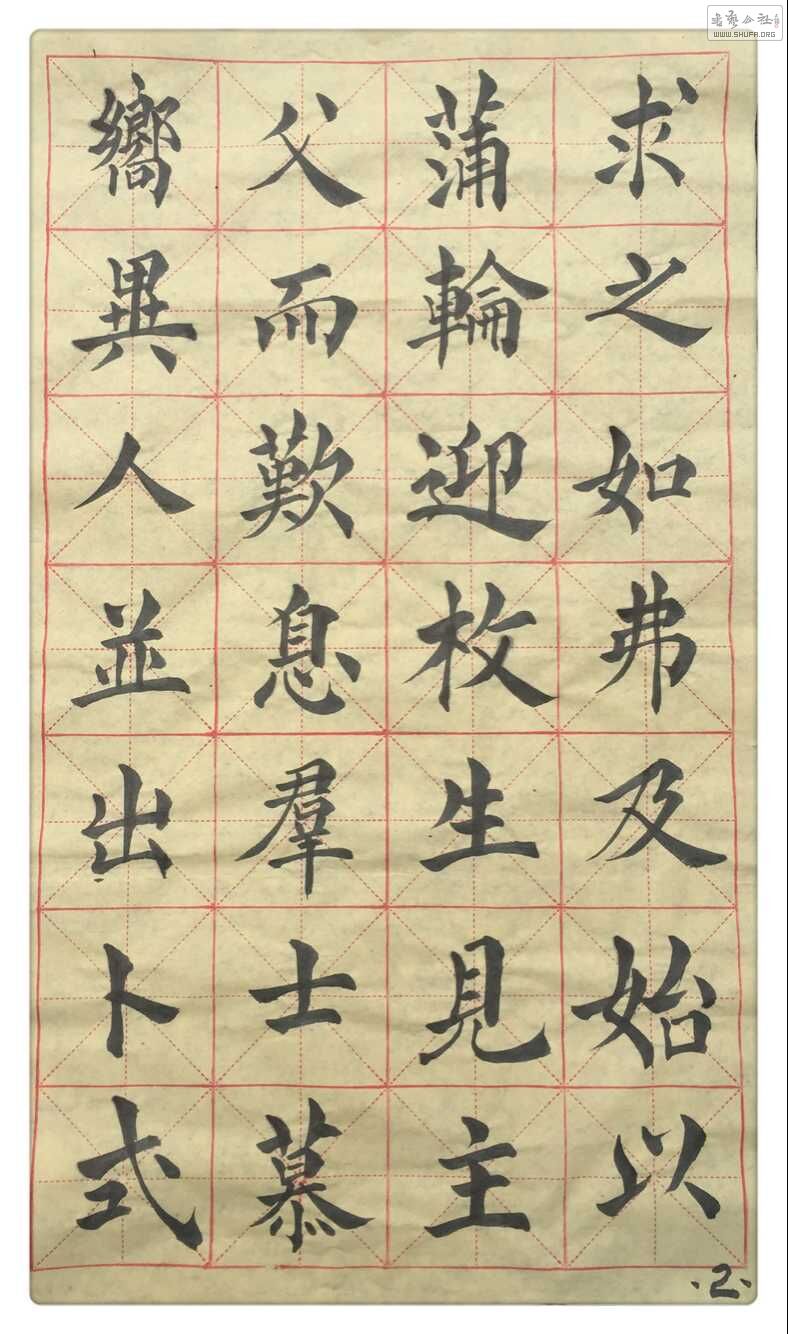 求之如弗及始以
蒲輪迎枚生見主
父而歎息羣士慕
嚮異人並出卜式
·2·
書藝公社
WWW.SHUFA.ORG